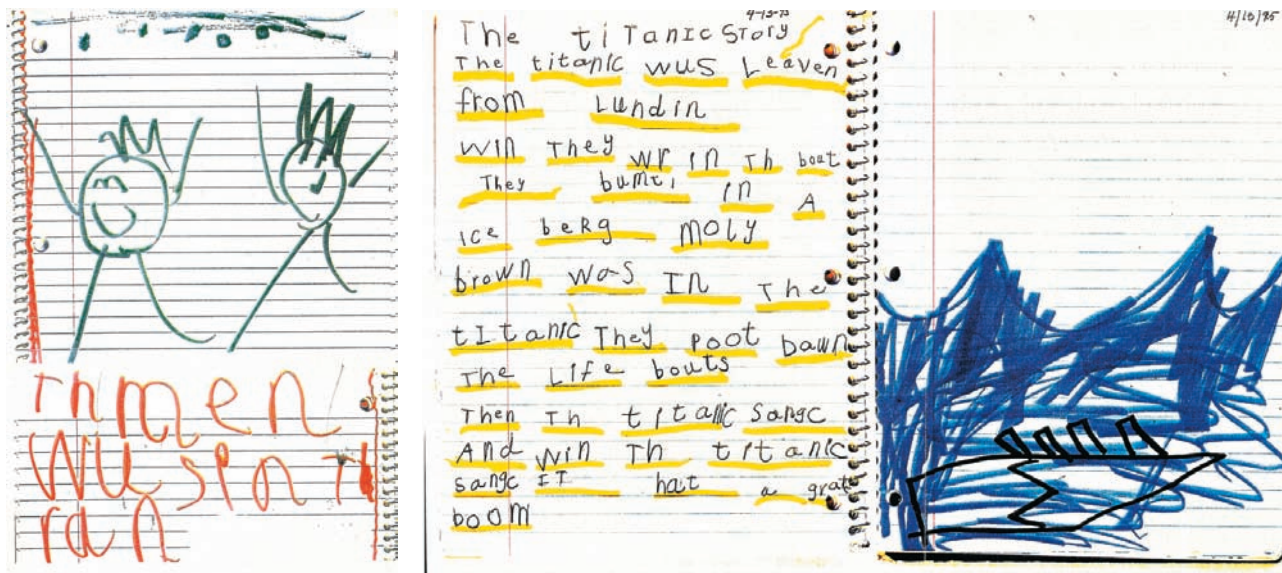 Thmen
WU spn Th
ran
4-13-95
The tiTanic Story
The titanic wus Leaven
from Lundin
win They wr in Th boat
They bumti in A
ice beRg MOLY
brown was In The
tItanic They poot bawn
The Life bouts
Then Th titanic Sangc
And win Th titanic
sangc IT hat a grate
boom
4/10/95